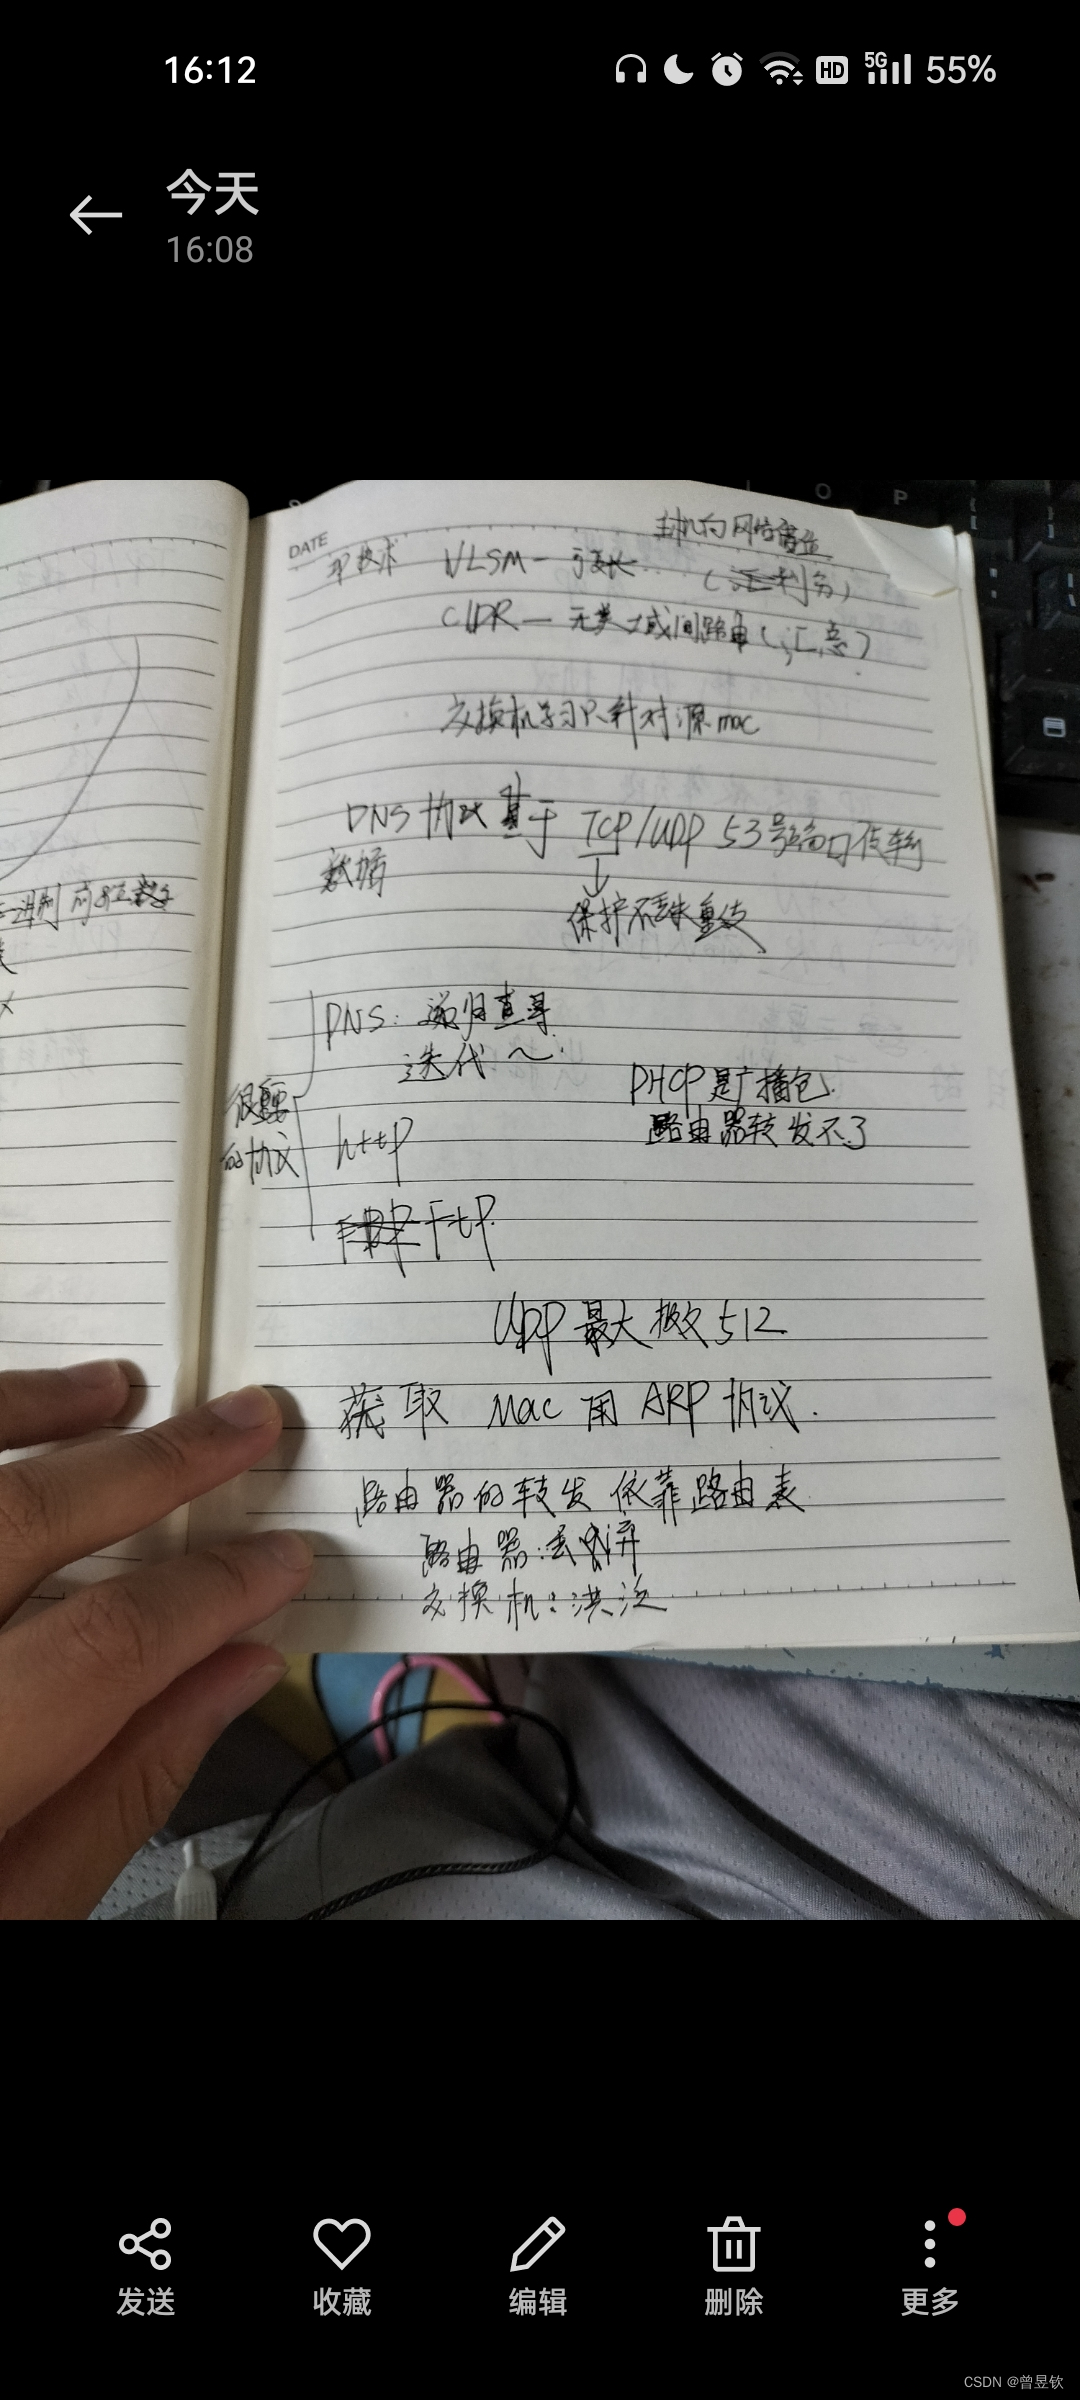 16:12
HD
5G
55%
今天
16:08
O P
DATE
主机向网络借位
技术 VLSM—可变长 (划分)
CIDR—无类域间路由(汇总)
交换机学习只针对源mac
DNS协议基于 TCP/UDP 53号端口传输
数据
保护不丢失重传
DNS: 递归查寻
迭代～
DHCP是广播包.
路由器转发不了
很重要
的协议
http
ftp.
UDP最大报文512
获取 Mac 用 ARP协议.
路由器的转发依靠路由表
路由器:丢弃
交换机:洪泛
二进制
发送
收藏
编辑
删除
更多
CSDN @曾昱钦